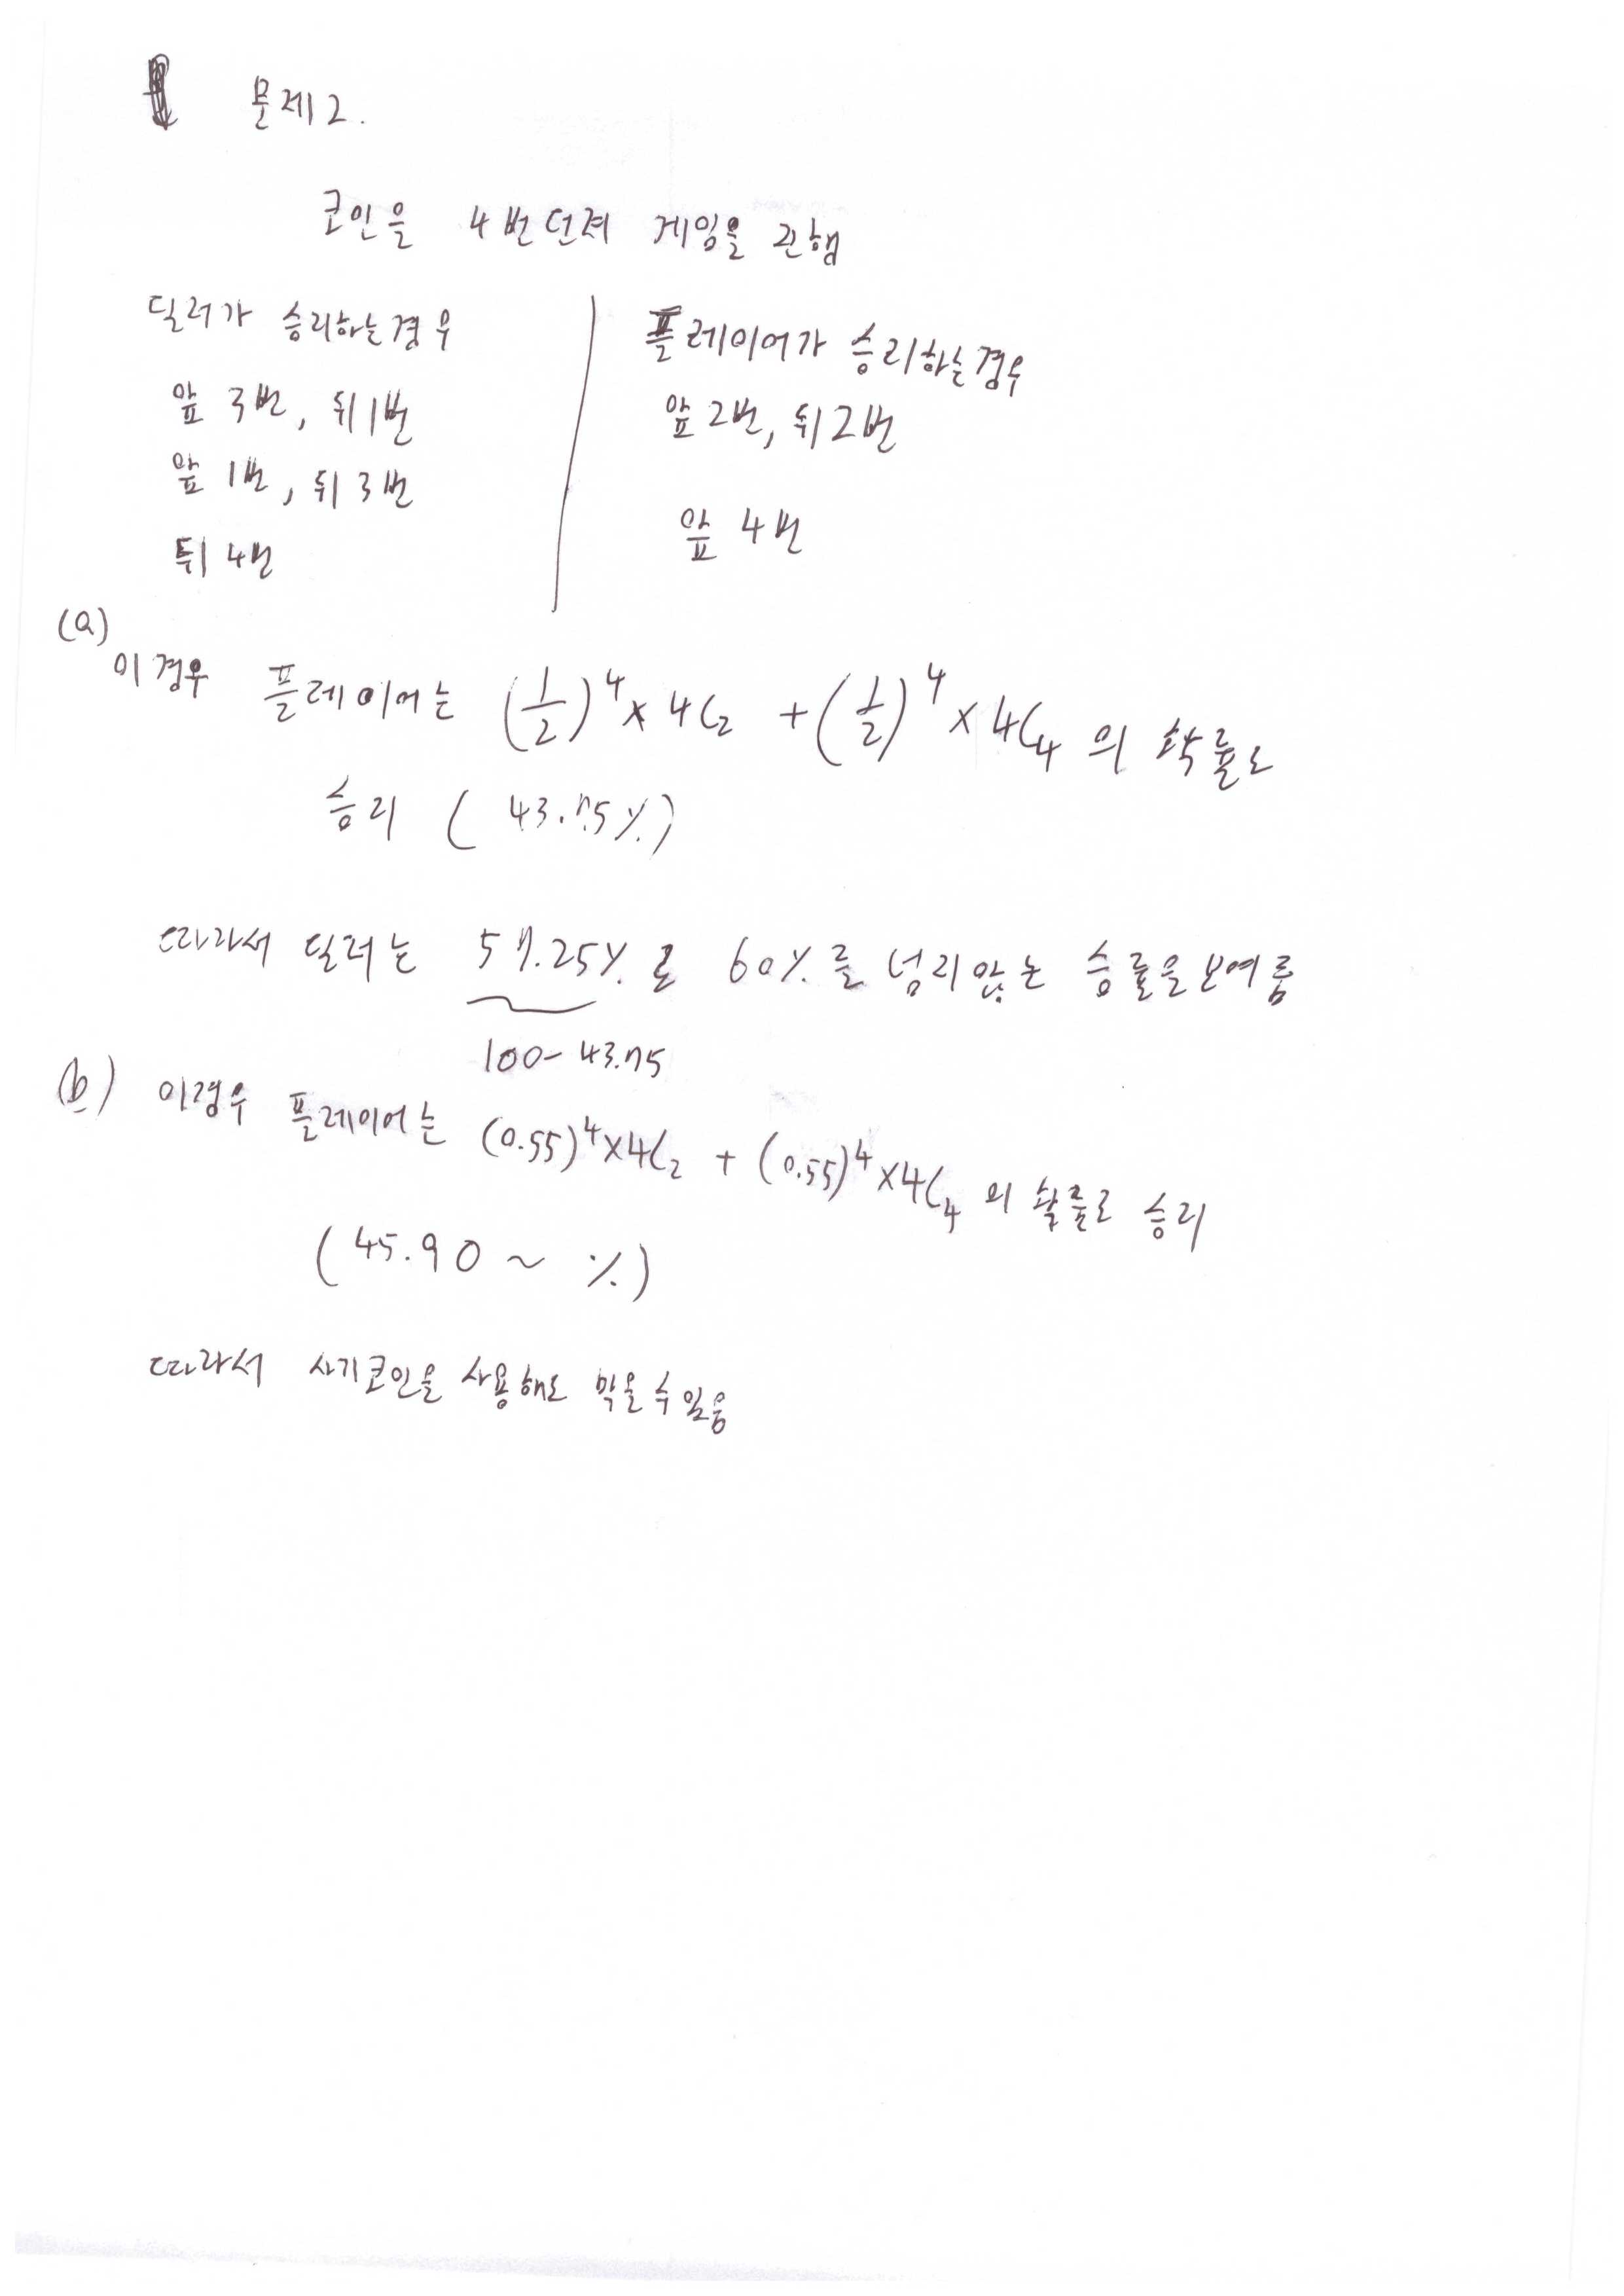 문제2.
코인을 4번던져 게임을 진행
딜러가 승리하는경우
앞 3번, 뒤1번
앞 1번, 뒤3번
뒤 4번
플레이어가 승리하는경우
앞2번, 뒤2번
앞 4번
(a)
이경우 플레이어는 (1/2)⁴ × 4C₂ + (1/2)⁴ × 4C₄ 의 확률로
승리 ( 43.75%)
따라서 딜러는 57.25%로 60%를 넘지않는 승률을보여줌
100- 43.75
(b) 이경우 플레이어는 (0.55)⁴×4C₂ + (0.55)⁴×4C₄ 의 확률로 승리
(45.90 ~ %)
따라서 사기코인을 사용해도 막을수있음